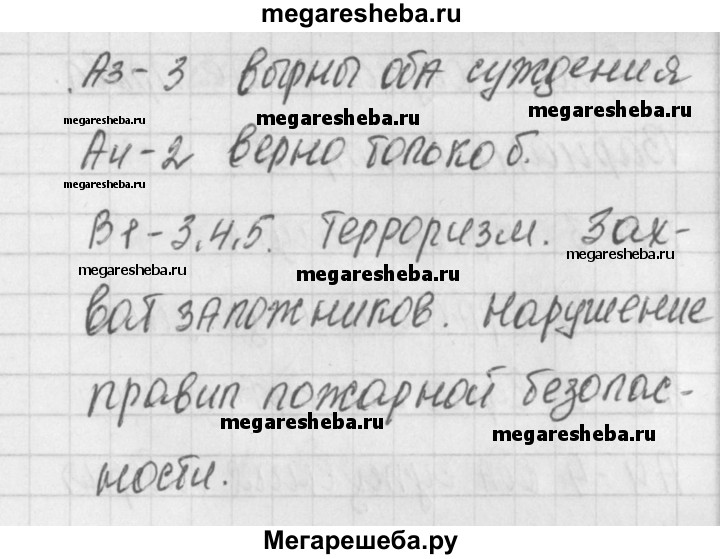 megaresheba.ru
А3-3 вырны оба суждения
megaresheba.ru megaresheba.ru megaresheba.ru
А4-2 верно только б.
megaresheba.ru
В1-3,4,5. Терроризм. Зах-
megaresheba.ru megaresheba.ru megaresheba.ru
ват заложников. Нарушение
правил пожарной безопас-
megaresheba.ru megaresheba.ru
ности.
Мегарешеба.ру